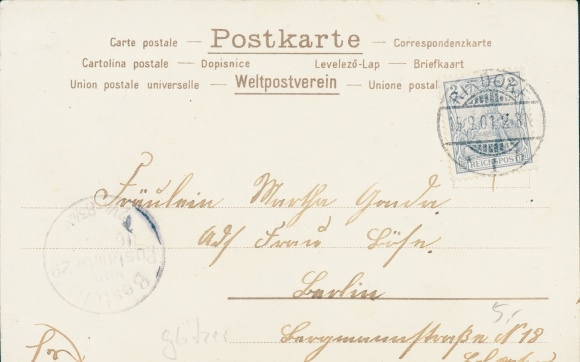 Carte postale — Postkarte — Correspondenzkarte
Cartolina postale — Dopisnice Levelező-Lap — Briefkaart
Union postale universelle — Weltpostverein — Unione postal
2 2
RIXDORF
9.01. 2-3N
REICHSPOST
Fräulein Martha Gonda
Adr Frau Böse.
Berlin
Bergmannstraße N 18
Bestellt
Postamte
glitzer